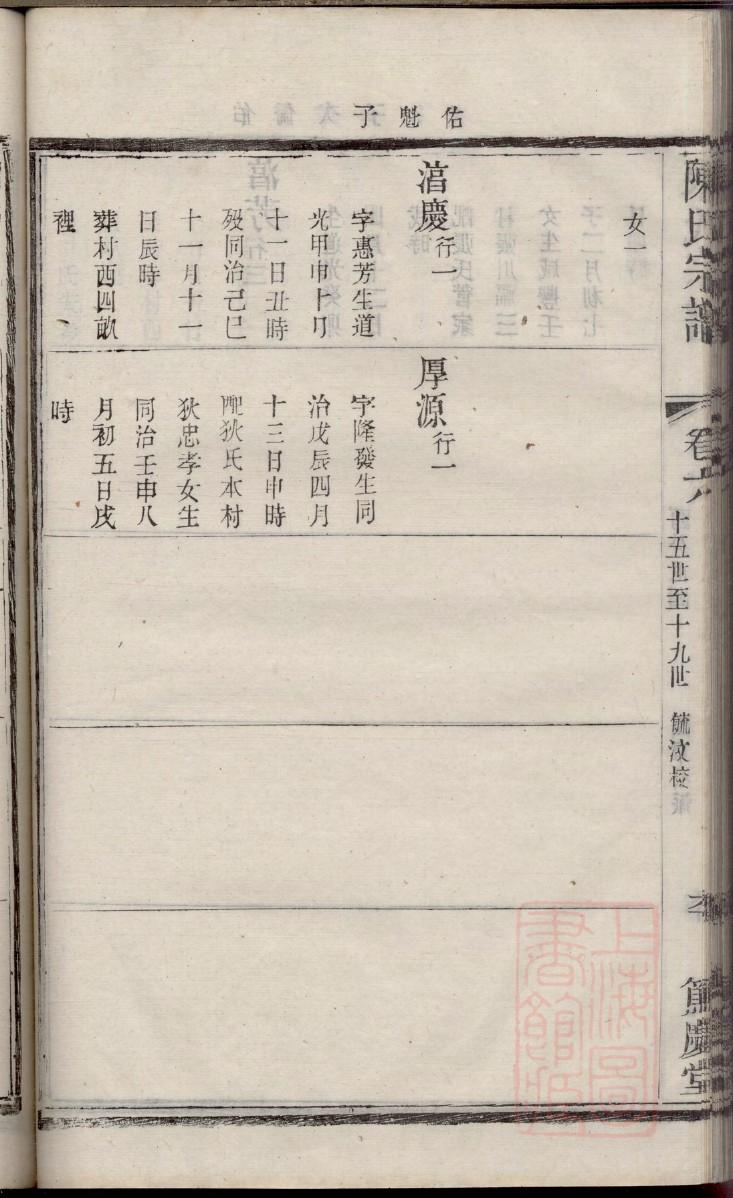 佑魁子
女一
湻慶行一
字惠芳生道
光甲申十一
十一日丑時
歿同治己巳
十一月十一
日辰時
葬村西四畝
裡
厚源行一
字隆發生同
治戊辰四月
十三日申時
配狄氏本村
狄忠孝女生
同治壬申八
月初五日戌
時
陳氏宗譜
卷六
十五世至十九世
毓汶校
篤慶堂
上海圖書館藏